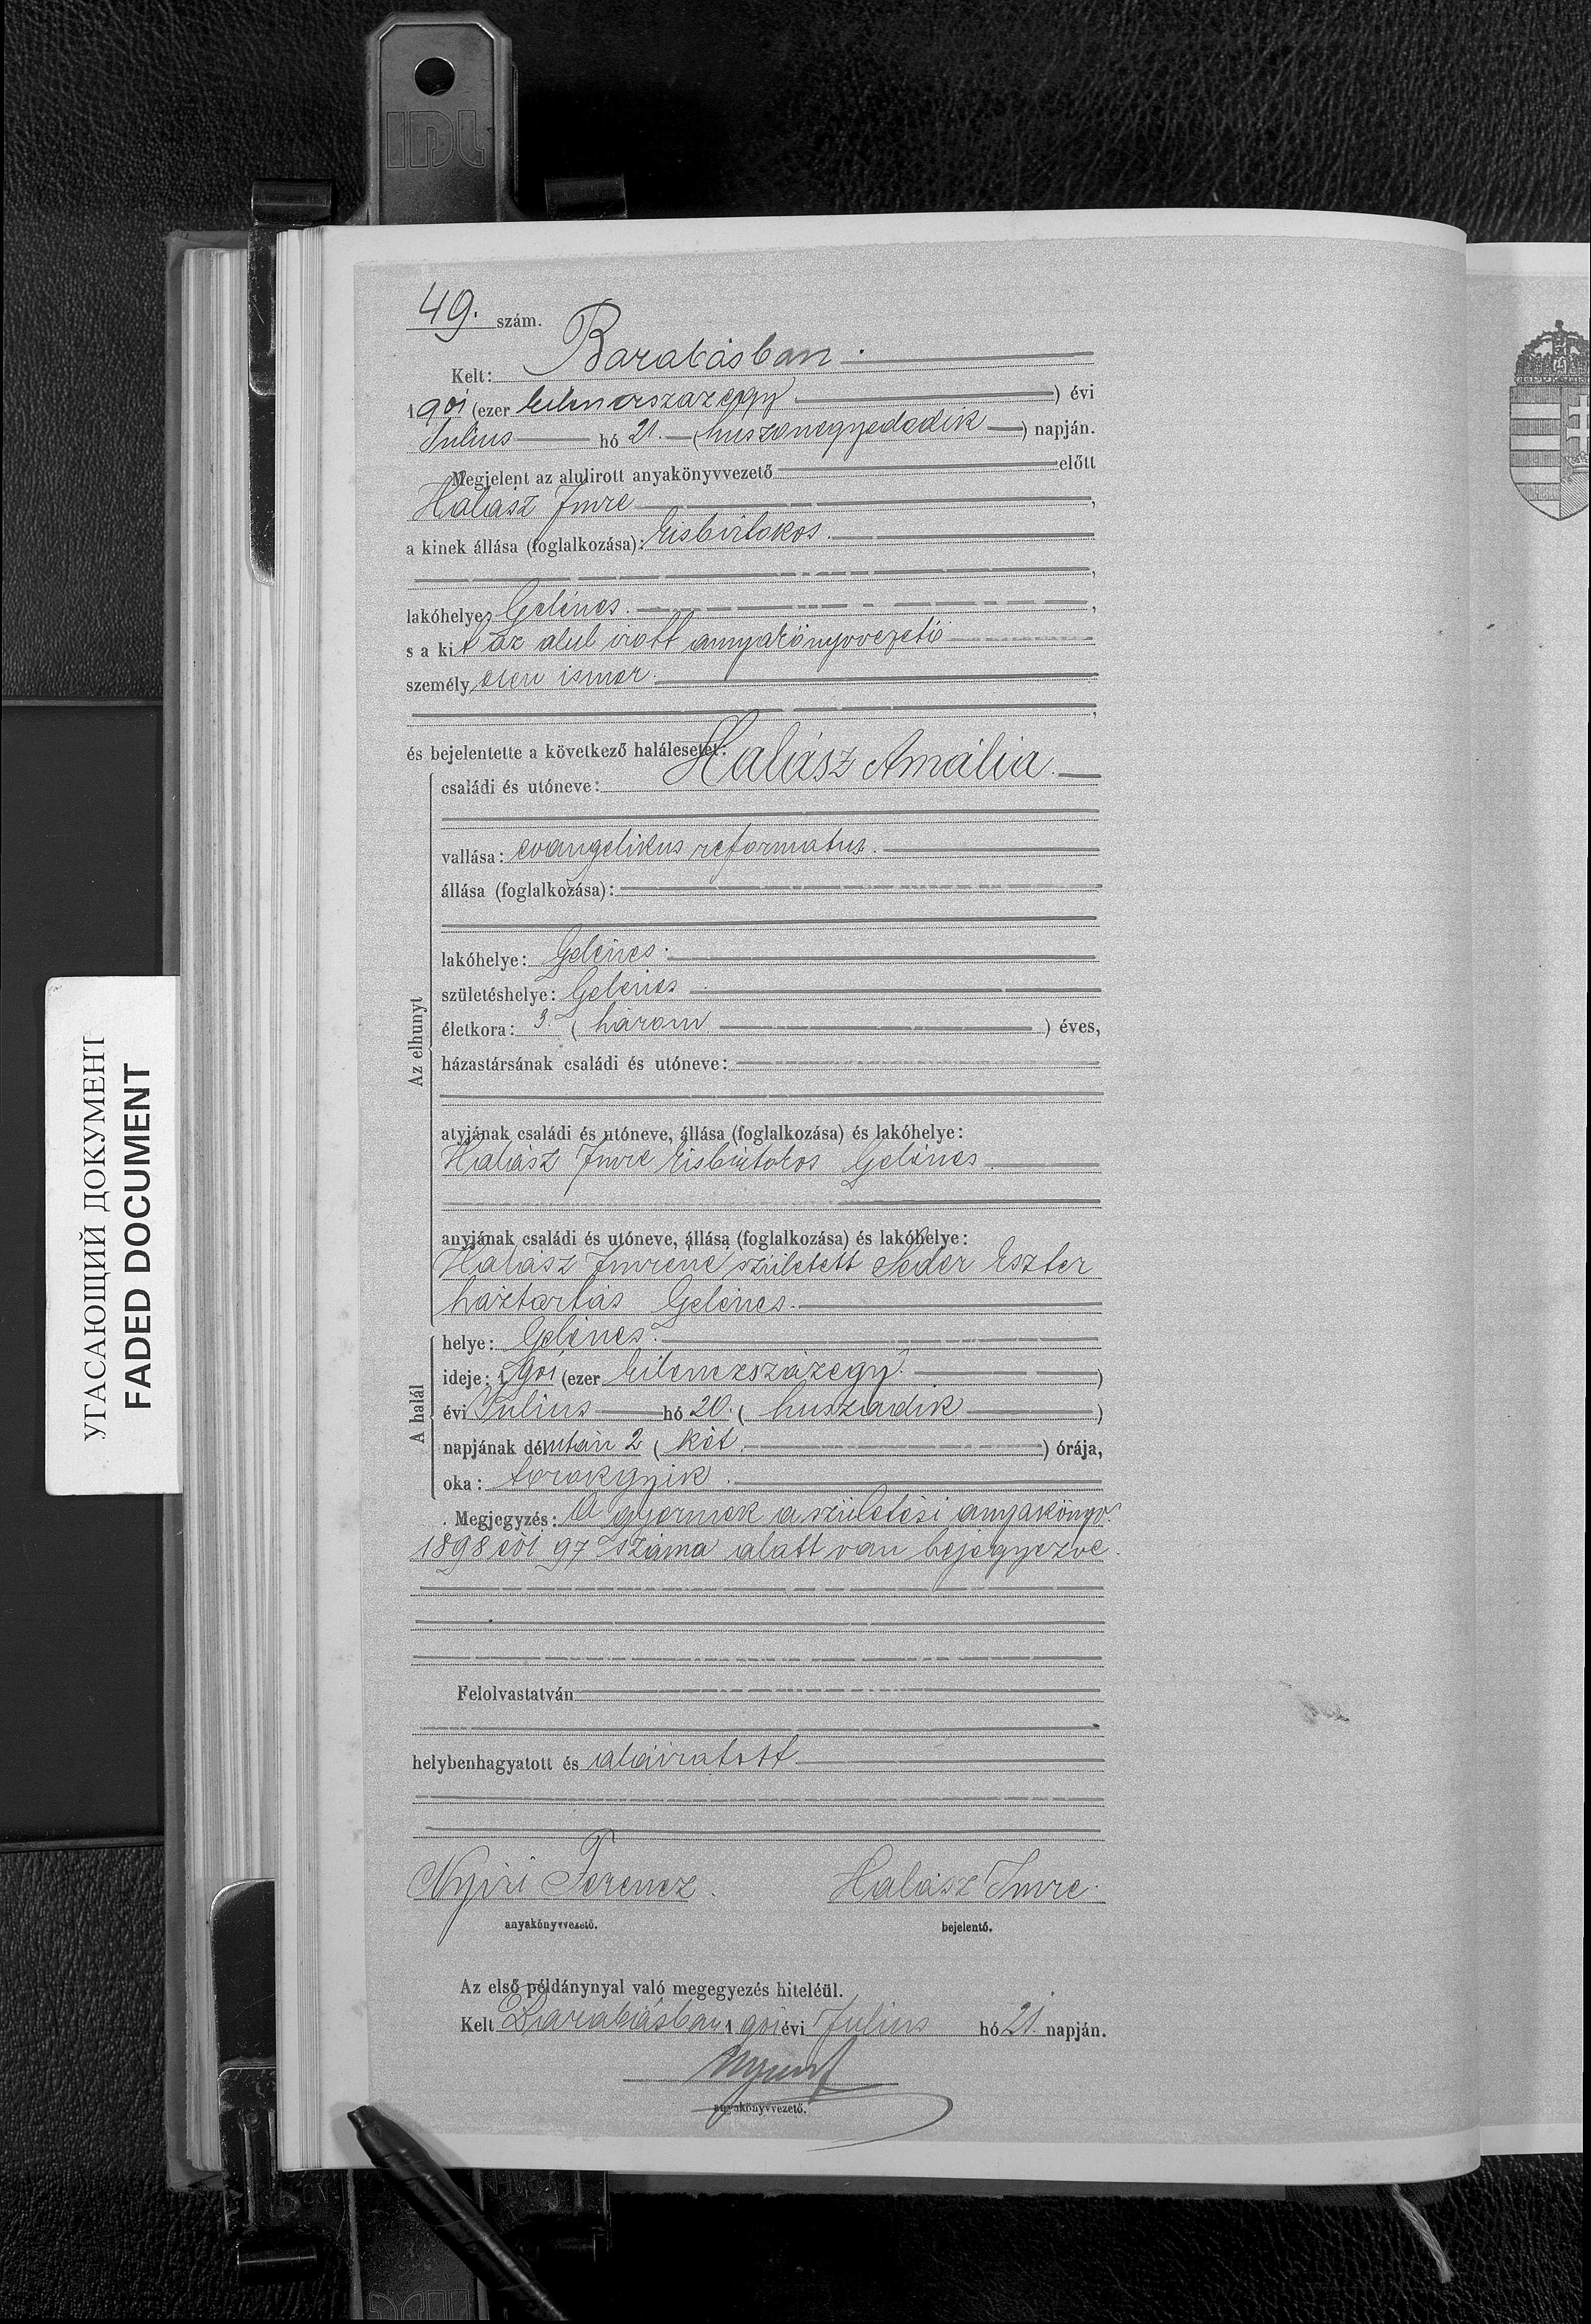 IDL
49. szám.
Kelt: Barabásban.
1901 (ezer kilenczszázegy) évi
Julius hó 21. (huszonegyededik) napján.
Megjelent az alulirott anyakönyvvezető előtt
Halász Imre,
a kinek állása (foglalkozása): kisbirtokos.
lakóhelye Gelénes.,
s a kit az alul irott anyakönyvvezető
személyesen ismer.
és bejelentette a következő halálesetet:
családi és utóneve: Halász Amália.
vallása: evangelikus reformatus.
állása (foglalkozása):
lakóhelye: Gelénes.
születéshelye: Gelénes.
életkora: 3. (három) éves,
házastársának családi és utóneve:
atyjának családi és utóneve, állása (foglalkozása) és lakóhelye:
Halász Imre kisbirtokos Gelénes.
anyjának családi és utóneve, állása (foglalkozása) és lakóhelye:
Halász Imréné született Séder Eszter
háztartás Gelénes.
Az elhunyt
helye: Gelénes.
ideje: 1901 (ezer kilenczszázegy.)
évi Julius hó 20. (huszadik)
napjának délután 2 (két.) órája,
oka: torokgyik.
A halál
Megjegyzés: A gyermek a születési anyakönyv
1898 évi 97 száma alatt van bejegyezve.
Felolvastatván
helybenhagyatott és aláiratott
Nyiri Ferencz. Halász Imre.
anyakönyvvezető. bejelentő.
Az első példánynyal való megegyezés hiteléül.
Kelt Barabásban 1901 évi Julius hó 21. napján.
anyakönyvvezető.
УГАСАЮЩИЙ ДОКУМЕНТ
FADED DOCUMENT